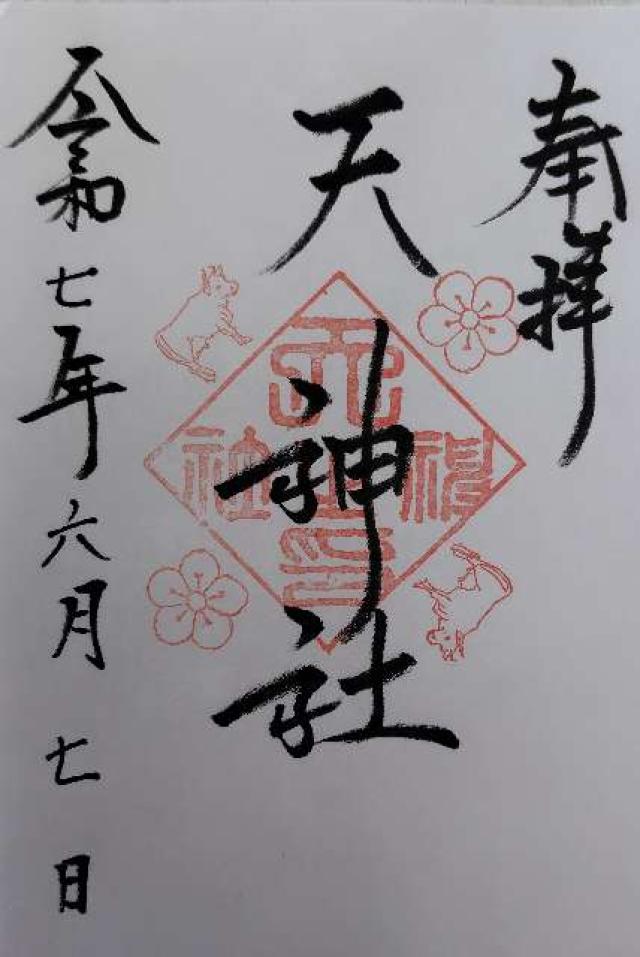 奉拝
天神社
令和七年六月七日